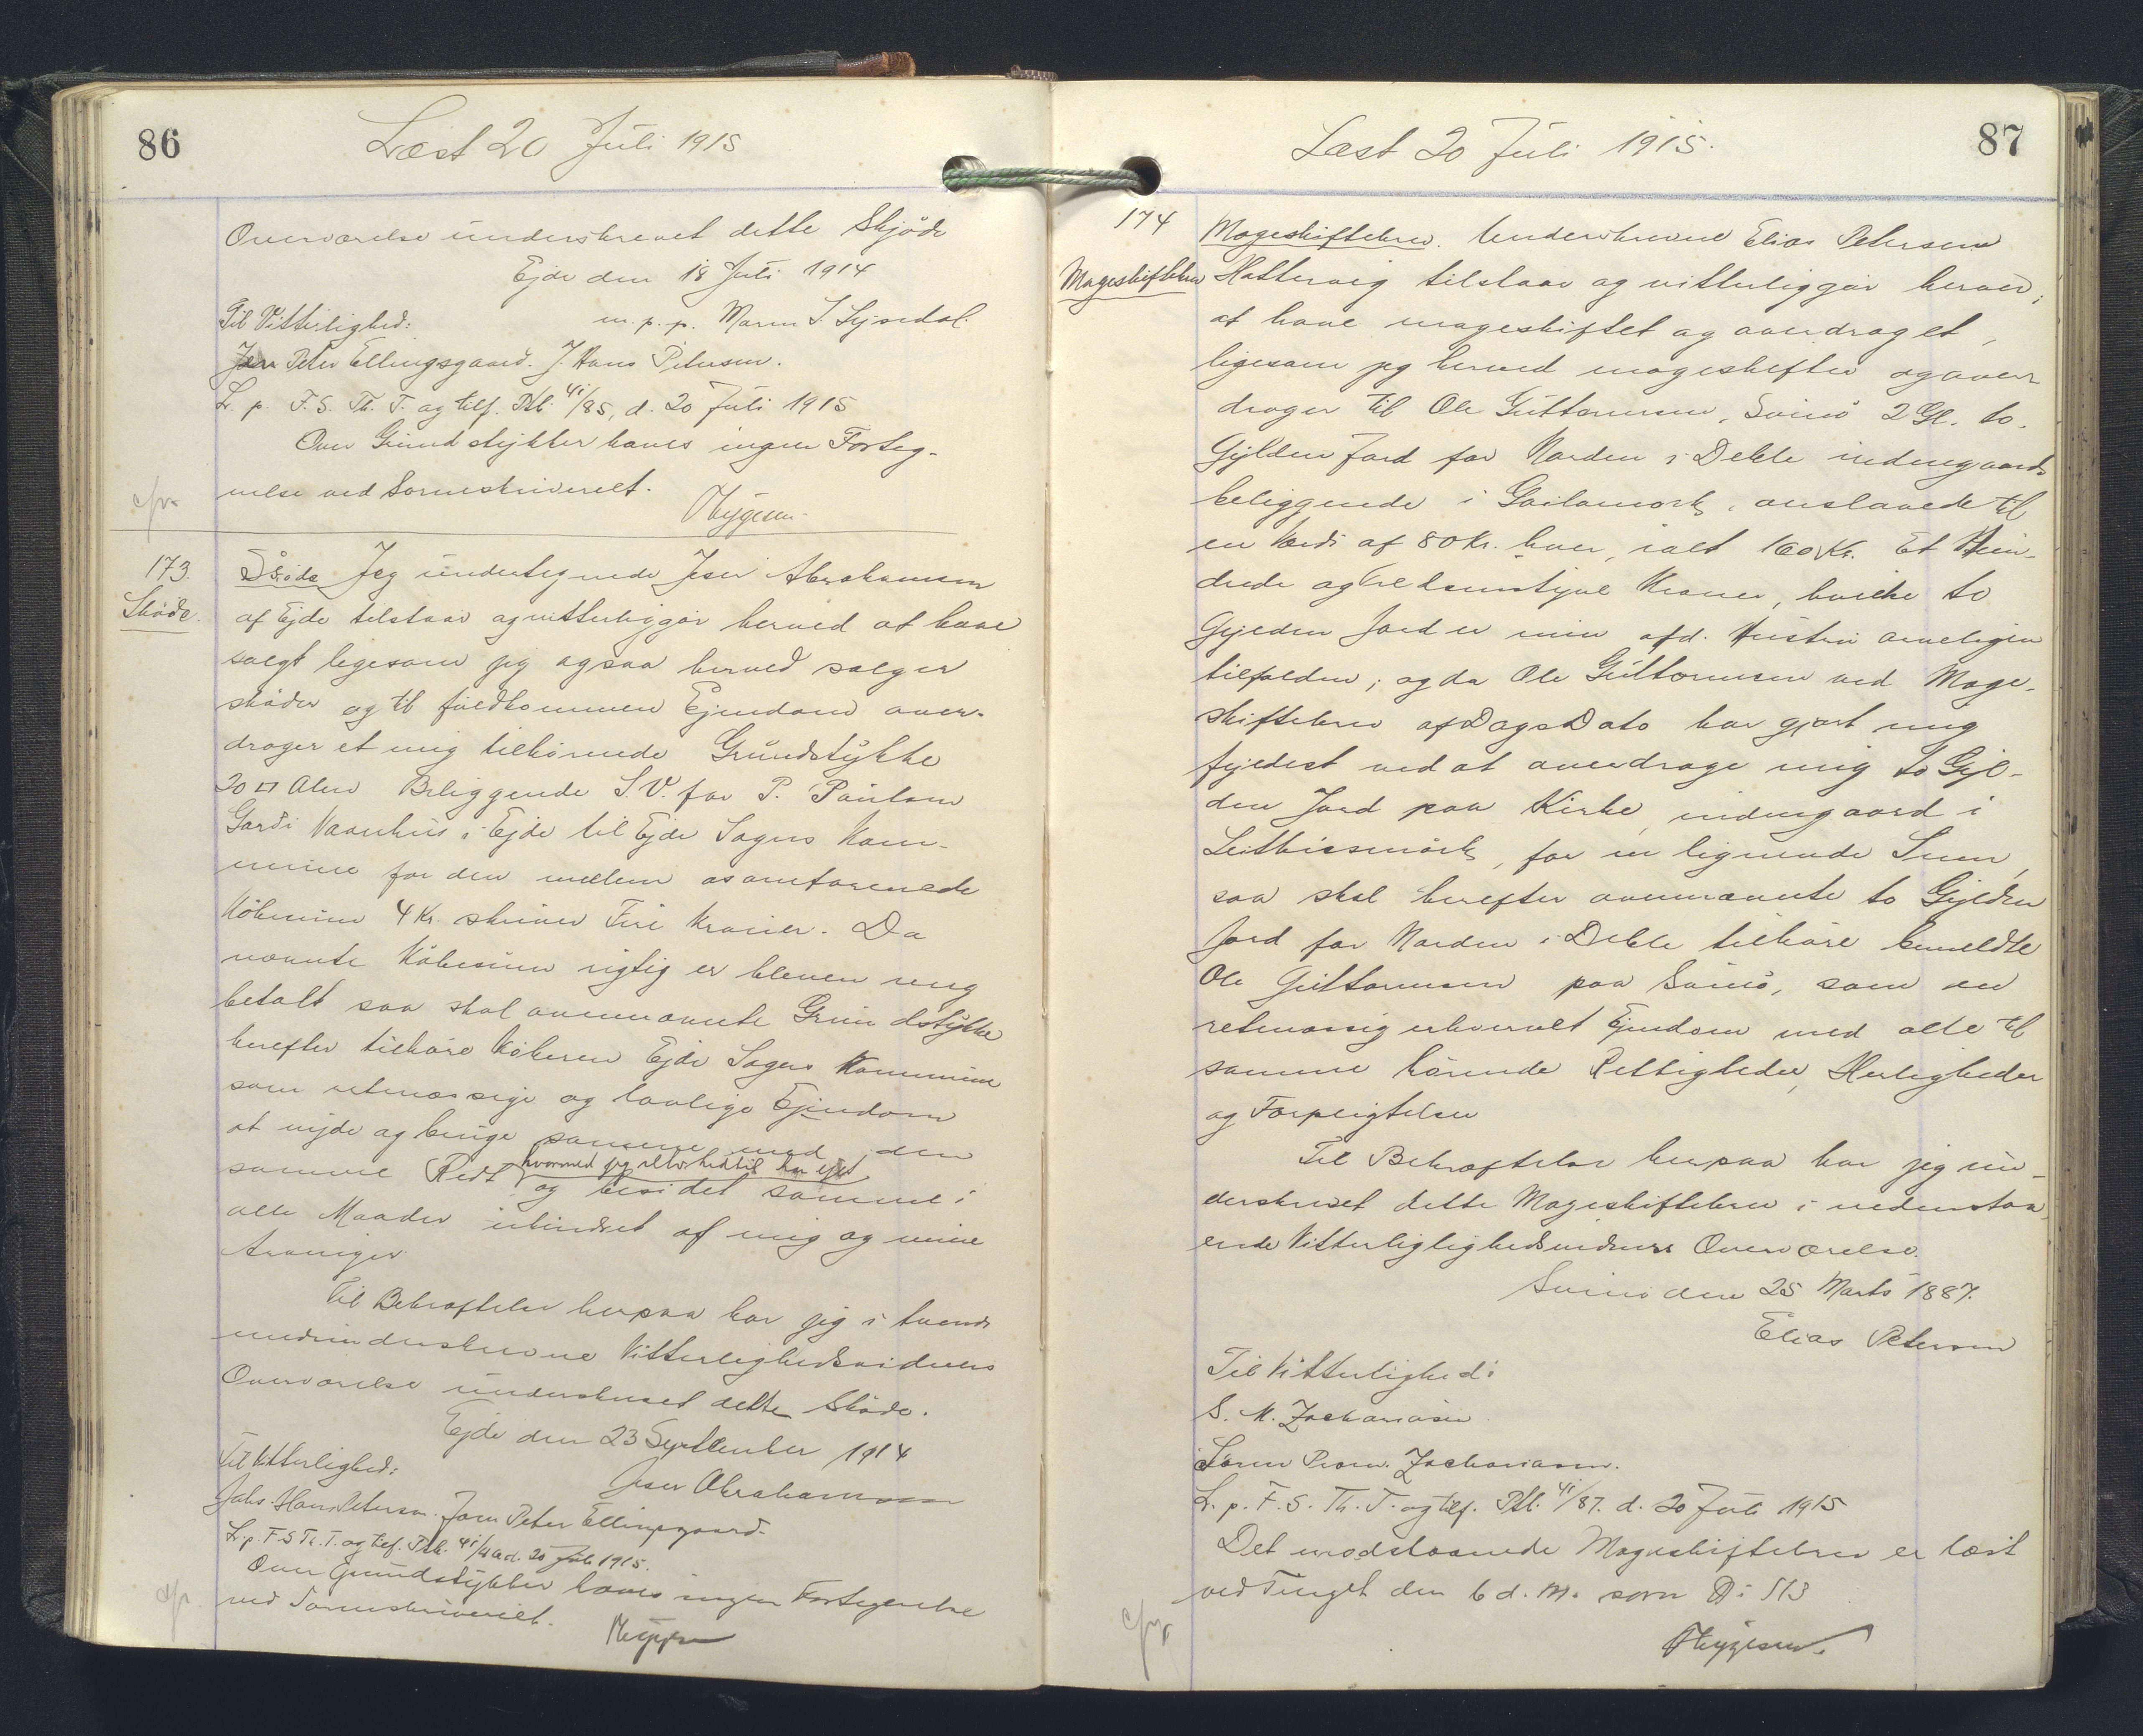 86
Læst 20 Juli 1915
Overværelse underskrevet dette Skjöde
Ejde den 18 Juli 1914
Til Vitterlighed: m. p. p. Maren S.
Jen Peter Ellingsgaard. J. Hans Petersen.
L. p. F. S. Th. T. og tilf. Ptb. 4i/85, d. 20 Juli 1915
Over Grundstykker haves ingen Forteg-
nelse ved Sorenskriveriet.
173.
Sköde.
Sköde Jeg undertegnede Jeser Abrahamsen
af Ejde tilstaar og vitterliggör herved at have
solgt ligesom jeg ogsaa herved sælger
sköder og til fuldkommen Ejendom over-
drager et mig tilhörende Grundstykke
20 □ Alen Beliggende S.V. for P. Paulsen
Gardi Vaanhus i Ejde til Ejde Sogns Kom-
mune for den mellem os omforenede
Köbesum 4 Kr. skriver Fire Kroner. Da
nævnte Köbesum rigtig er bleven mig
betalt saa skal ovennævnte Grundstykke
herefter tilhöre Köberen Ejde Sogns Kommune
som retmæssige og lovlige Ejendom
at nyde og bruge samme med den
samme Rett hvormed jeg retter hertil har ejet
og besidet samme i
alle Maader uhindret af mig og mine
Arvinger
Til Bekræftelse herpaa har jeg i tvende
medunderskrevne Vitterlighedsvidners
Overværelse underskrevet dette Sköde.
Ejde den 23 September 1914
Til Vitterlighed: Jeser Abrahamsen
Johs. Hans Petersen. Joen Peter Ellingsgaard.
L. p. F. S. Th. T. og tilf. Ptb. 4i/ d. 20 Juli 1915.
Over Grundstykker haves ingen Fortegnelse
ved Sorenskriveriet.
87
Læst 20 Juli 1915.
174
Mageskiftebrev
Mageskiftebrev. Underskrevne Elias Petersen
Hattervig tilstaar og vitterliggör herved,
at have mageskiftet og overdraget,
ligesom jeg herved mageskifter og over-
drager til Ole Guttormsen, Svinö 2 Gl. to
Gylden Jord for Norden i Deble indengaards
beliggende i anslaaede til
en Værdi af 80 Kr. hver, ialt 160 Kr. Et Hun-
drede og Tredsindstyve Kroner, hvilke to
Gylden Jord er min afd. Hustru arveligen
tilfalden; og da Ole Guttormsen ved Mage-
skiftebrev af Dags Dato har gjort mig
fyldest ved at overdrage mig to Gyl-
den Jord paa Kirke, indengaard i
for en lignende Sum,
saa skal herefter ovennævnte to Gylden
Jord for Norden i Deble tilhöre bemeldte
Ole Guttormsen paa Svinö, som en
retmæssig erhvervet Ejendom med alle til
samme hörende Rettigheder, Herligheder
og Forpligtelser
Til Bekræftelse herpaa har jeg un-
derskrevet dette Mageskiftebrev i nedenstaa-
ende Vitterliglighedsvidners Overværelse.
Svinö den 25 Marts 1887.
Elias Petersen
Til Vitterlighed:
S. M. Zachariasen
Sören Zachariasen.
L. p. F. S. Th. T. og tilf. Ptb. 4i/87. d. 20 Juli 1915
Det modstaaende Mageskiftebrev er læst
ved Tinget den 6 d. M. som